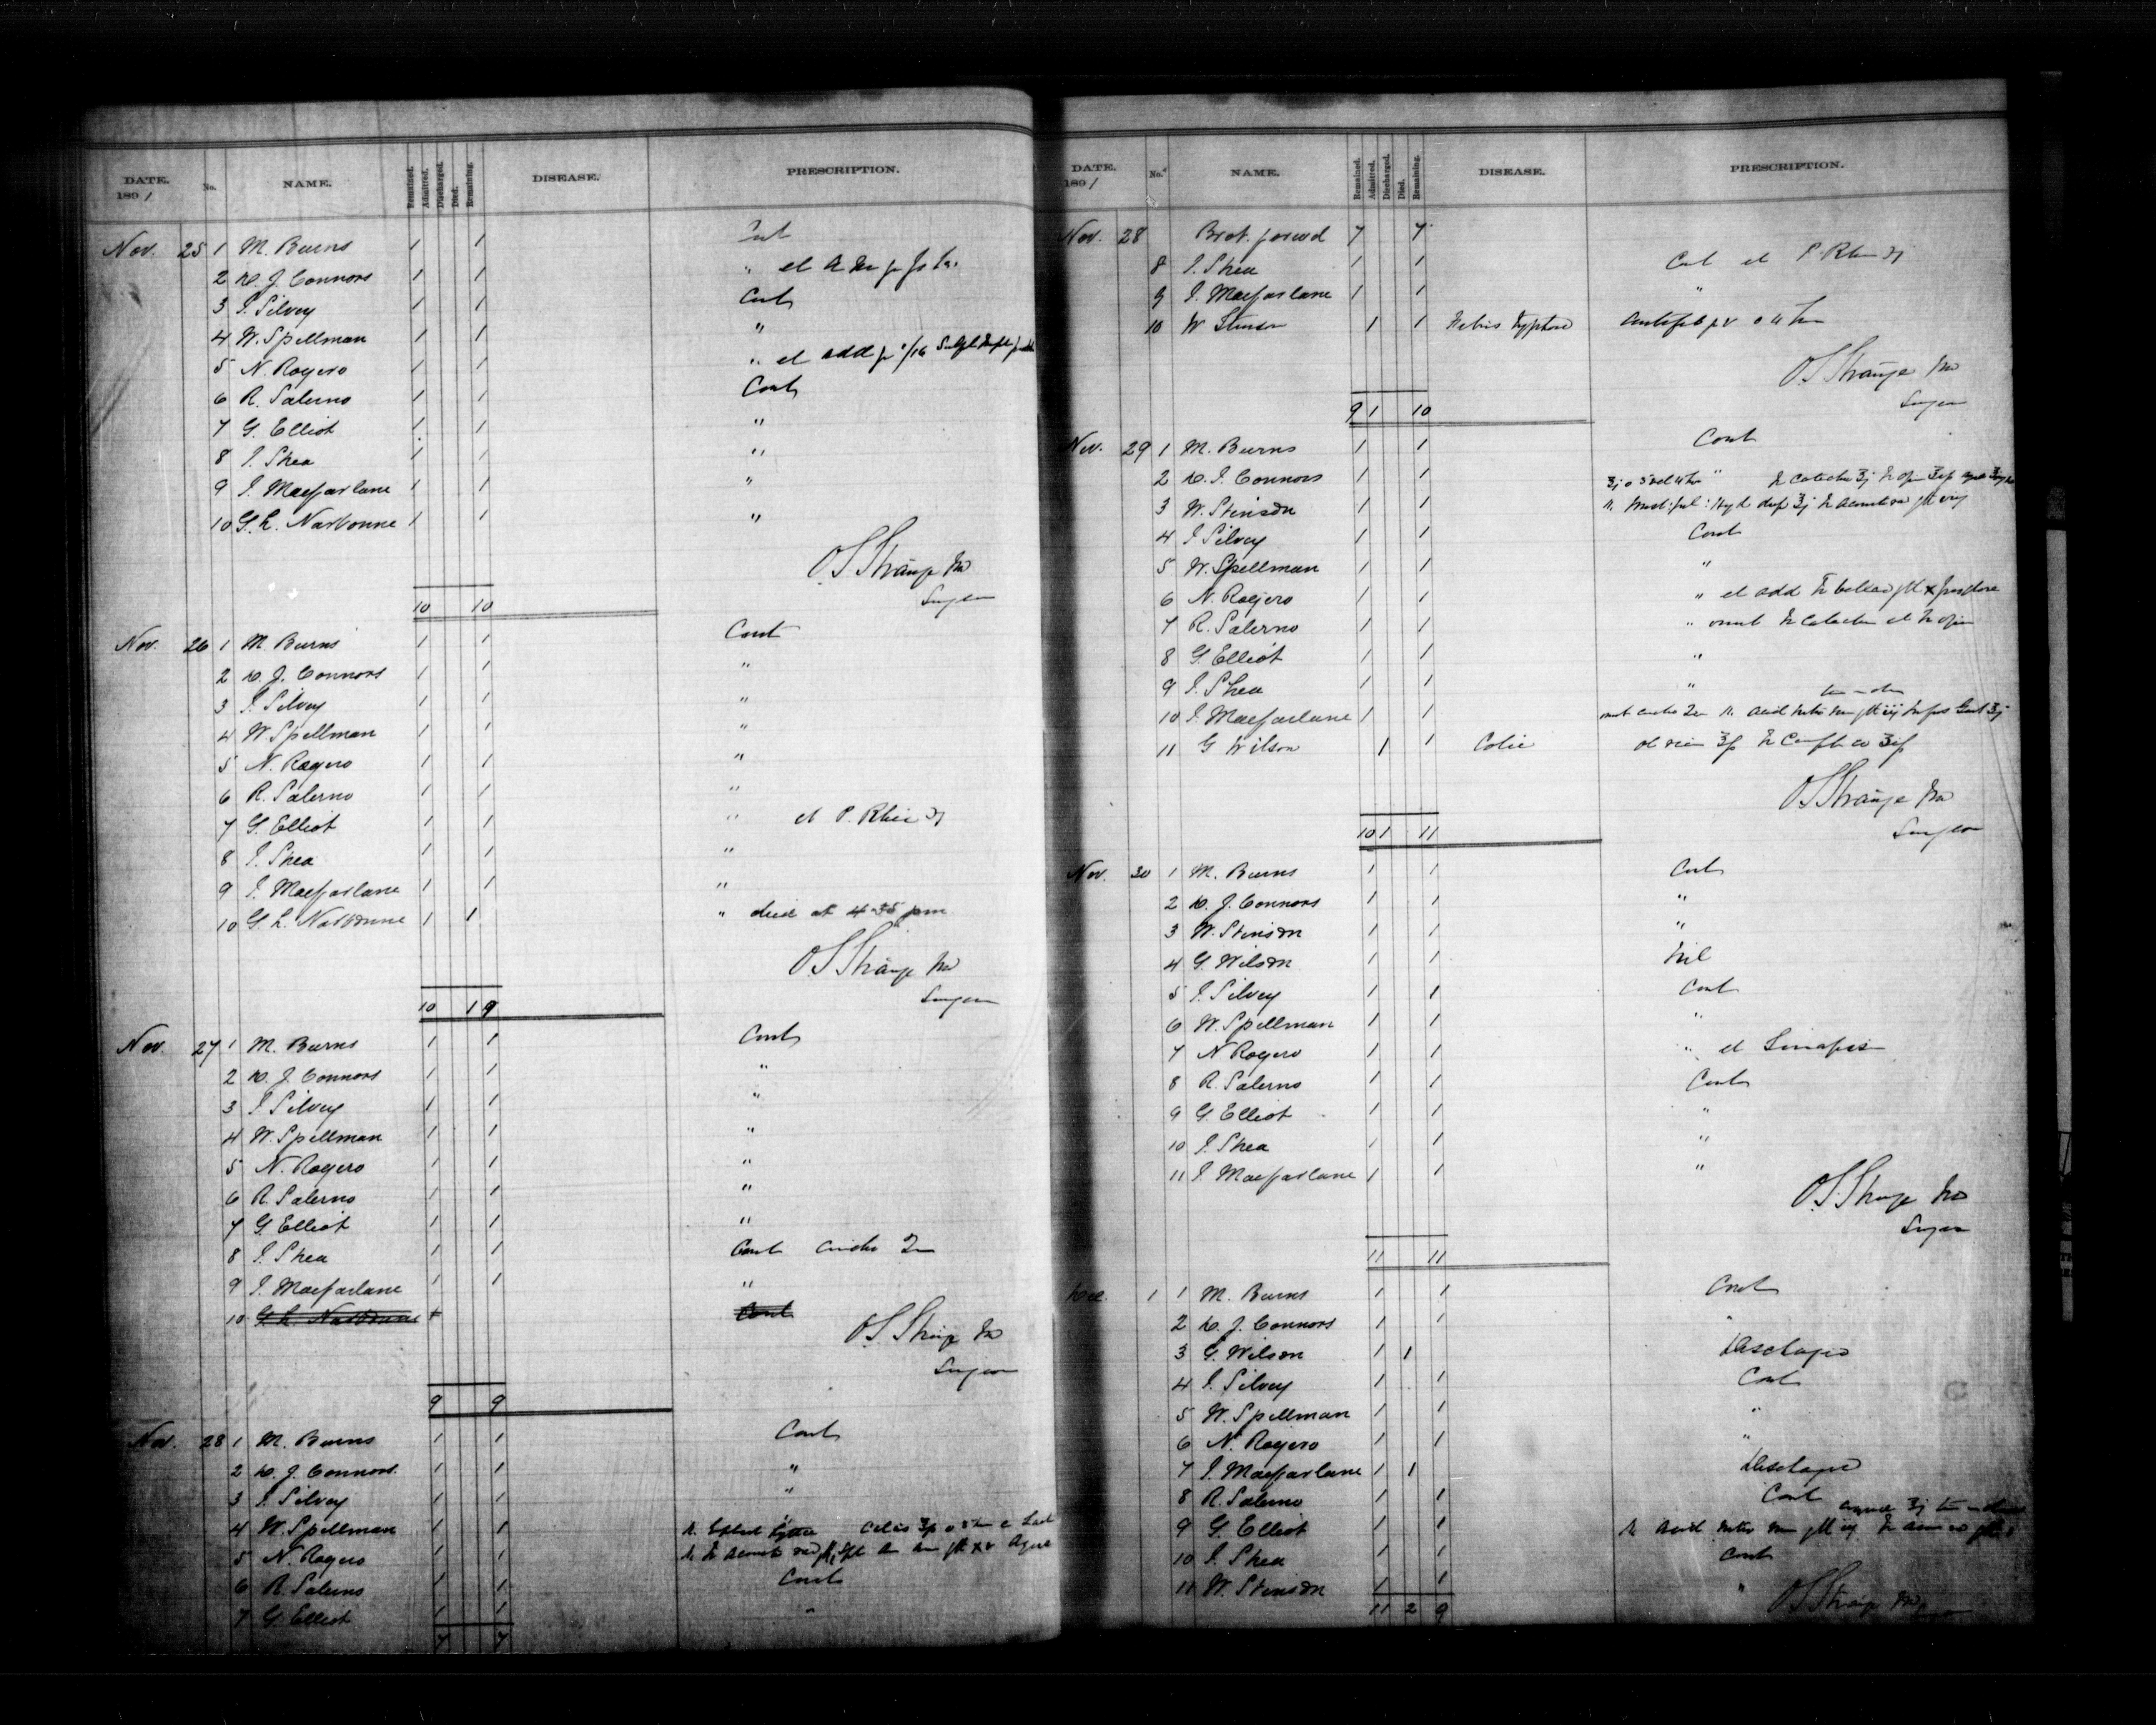 DATE. 1891 No. NAME. Remained. Admitted. Discharged. Died. Remaining. DISEASE. PRESCRIPTION.
Nov. 25 1 M. Burns 1 1 Cont
2 D. J. Connors 1 1 " et
3 J. Silvey 1 1 Cont
4 W. Spellman 1 1 "
5 N. Rogero 1 1 " et add
6 R. Salerno 1 1 Cont
7 G. Elliot 1 1 "
8 J. Shea 1 1 "
9 J. Macfarlane 1 1 "
10 G. L. Narbonne 1 1 "
O S Strange MD
Surgeon
10 10
Nov. 26 1 M. Burns 1 1 Cont
2 D. J. Connors 1 1 "
3 J. Silvey 1 1 "
4 W. Spellman 1 1 "
5 N. Rogero 1 1 "
6 R. Salerno 1 1 "
7 G. Elliot 1 1 " et P. Rhei
8 J. Shea 1 1 "
9 J. Macfarlane 1 1 "
10 G. L. Narbonne 1 1 " died at 4-35 pm
O S Strange MD
Surgeon
10 1 9
Nov. 27 1 M. Burns 1 1 Cont
2 D. J. Connors 1 1 "
3 J. Silvey 1 1 "
4 W. Spellman 1 1 "
5 N. Rogero 1 1 "
6 R. Salerno 1 1 "
7 G. Elliot 1 1 "
8 J. Shea 1 1 Cont
9 J. Macfarlane 1 1 "
10 G. L. Narbonne 1 Cont
O S Strange MD
Surgeon
9 9
Nov. 28 1 M. Burns 1 1 Cont
2 D. J. Connors 1 1 "
3 J. Silvey 1 1 "
4 W. Spellman 1 1
5 N. Rogero 1 1 Aqua
6 R. Salerno 1 1 Cont
7 G. Elliot 1 1 "
7 7
DATE. 1891 No. NAME. Remained. Admitted. Discharged. Died. Remaining. DISEASE. PRESCRIPTION.
Nov. 28 Brot. forwd 7 7
8 J. Shea 1 1 Cont et P Rhei
9 J. Macfarlane 1 1 "
10 W Stinson 1 1 Febris Typhoid
O S Strange MD
Surgeon
9 1 10
Nov. 29 1 M. Burns 1 1 Cont
2 D. J. Connors 1 1 "
3 W. Stinson 1 1
4 J Silvey 1 1 Cont
5 W. Spellman 1 1 "
6 N. Rogero 1 1 " et add
7 R. Salerno 1 1 " omit
8 G. Elliot 1 1 "
9 J. Shea 1 1 "
10 J. Macfarlane 1 1 omit
11 G Wilson 1 1 Colic
O S Strange MD
Surgeon
10 1 11
Nov. 30 1 M. Burns 1 1 Cont
2 D. J. Connors 1 1 "
3 W. Stinson 1 1 "
4 G. Wilson 1 1 Nil
5 J. Silvey 1 1 Cont
6 W. Spellman 1 1 "
7 N Rogero 1 1 " et Sinapis
8 R. Salerno 1 1 Cont
9 G. Elliot 1 1 "
10 J. Shea 1 1 "
11 J. Macfarlane 1 1 "
O S Strange MD
Surgeon
11 11
Dec. 1 1 M. Burns 1 1 Cont
2 D. J. Connors 1 1 "
3 G. Wilson 1 1 Discharged
4 J. Silvey 1 1 Cont
5 W. Spellman 1 1 "
6 N. Rogero 1 1 "
7 J. Macfarlane 1 1 Discharged
8 R. Salerno 1 1 Cont
9 G. Elliot 1 1
10 J. Shea 1 1 Cont
11 W. Stinson 1 1 "
11 2 9
O S Strange MD